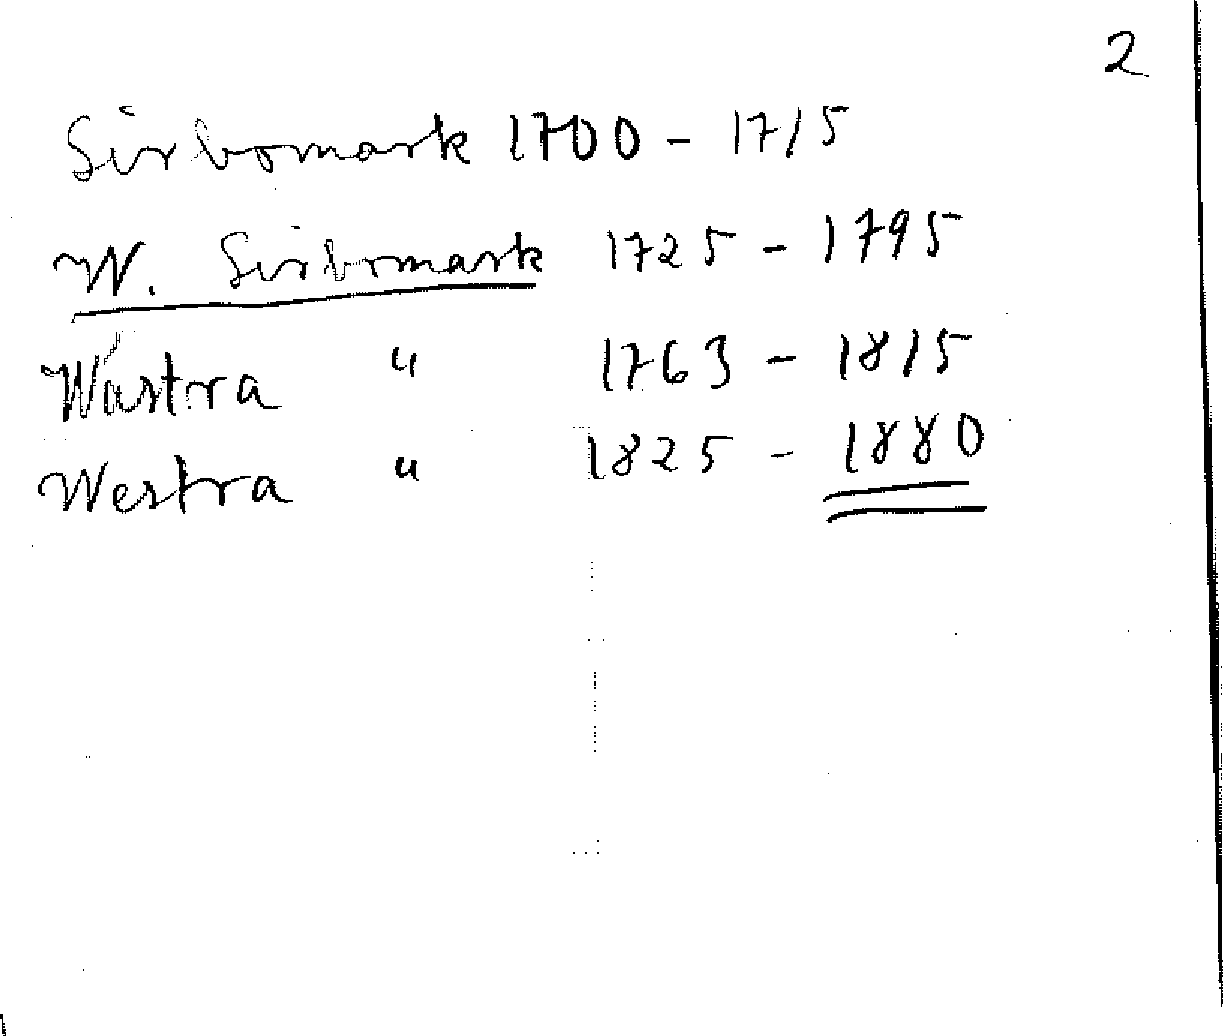 2
Sirbomark 1700 - 1715
W. Sirbomark 1725 - 1795
Wästra " 1763 - 1815
Westra " 1825 - 1880